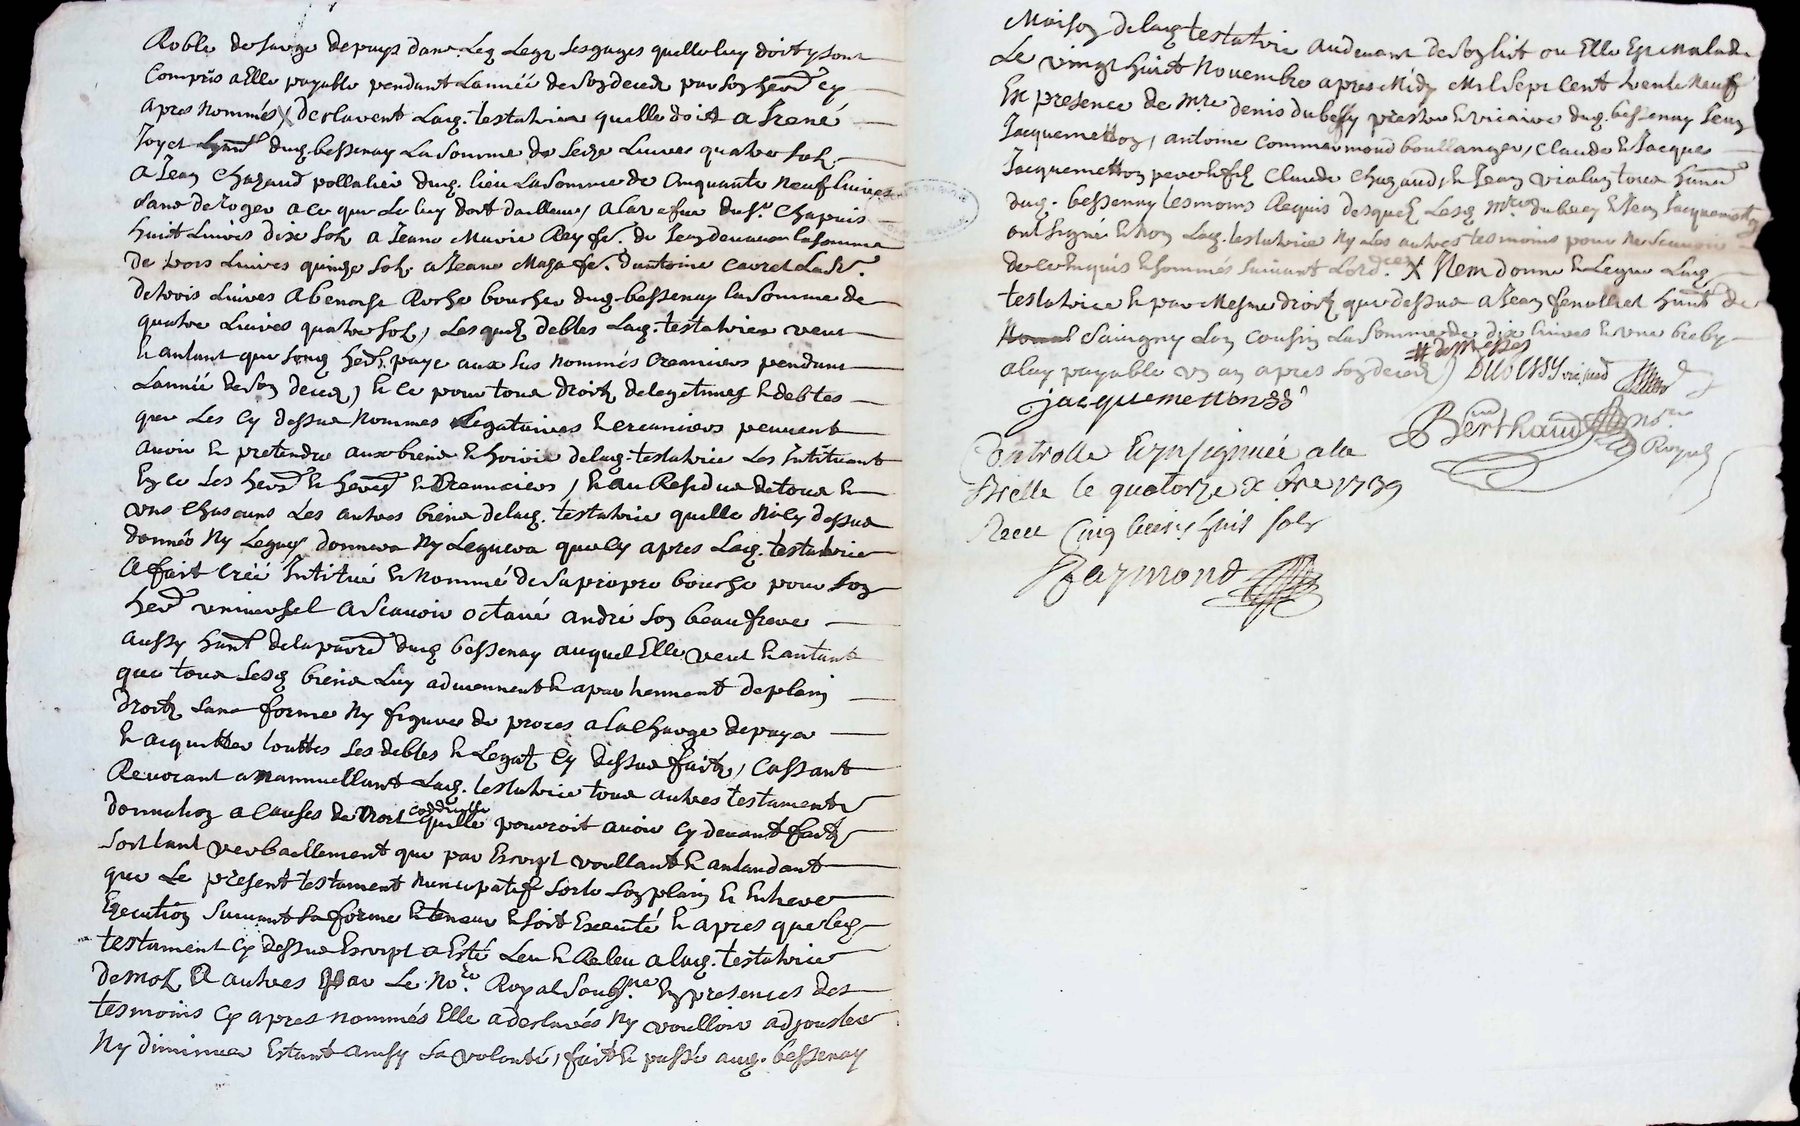 Robbe de sarge de pays dans leq. legz les gages quelle luy doit y sont
Compris a Elle payable pendant lannéé de son deceds par son herer cy
apres nommés X declarent lad. testatrice quelle doit a
Joyet hant dud. bessenay la somme de seize Livres quatre sols
a Jean Chazaud dud. lieu la somme de Cinquante Neuf livres
sans deroger a ce que le luy doit dailleurs, a la vefve du sr. Chapuis
huit Livres dix sols a Jeane Marie Rey fe. de Jean la somme
de trois Livres quinze sols, a Jeane fe. dantoine la so.
de trois Livres a benoist Roche boucher dud. bessenay la somme de
quatre Livres quatre sols, Lesquels debtes lad. testatrice veut
et antant que sond. herer paye aux sus nommés Creanciers pendant
Lannéé de son deceds, et ce pour tous droits de legitimes et debtes
que les cy dessus nommés Legataires et creanciers peuvent
avoir et pretendre aux biens et hoirie de lad. testatrice les Intituant
En ce les herers et Creanciers, et au Residue de tous et
uns chascuns les autres biens de lad. testatrice quelle n'a cy dessus
donnés Ny Legués donnera Ny Leguera que cy apres lad. testatrice
a fait créé Intitué et Nommé de sa propre bouche pour son
herer universel a scavoir octave andré son beau frere
aussy hant de la parre dud. bessenay auquel Elle veut et antant
que tous sesd. biens luy adviennent et apartiennent de plain
droit sans forme Ny figure de proces a la charge de payer
et acquitter touttes ses debtes et Legats cy dessus faits, Cassant
Revocant annullant lad. testatrice tous autres testaments
donnation a causes de Mort codicille quelle pourroit avoir cy devant faits
soit tant verbaillement que par Escript voullant et antandant
que le present testament nuncupatif sorte son plain et Entiere
Execution suivant sa forme et teneur et soit Executé et apres que led.
testament cy dessus Escript a Esté Leu et Releu a lad. testatrice
de mot a autres par le Nore. Royal soubne. En presences des
tesmoins cy apres nommés Elle a declarés Ny voulloir adjouster
Ny diminuer Estant ainsy sa volonté, fait et passé aud. bessenay
Maison de lad. testatrice au devant de son lit ou Elle Est malade
Le vingt huit Novembre apres Midy Mil sept Cent trente Neuf
En presence de mre. denis dubessy prestre et vicaire dud. bessenay Jean
Jacquemetton, antoine Commarmond boullanger, Claude et Jacques
Jacquemetton pere et fils Claude Chazaud, et Jean vialan tous hants
dud. bessenay tesmoins Requis desquels lesd. mre. dubessy et Jean Jacquemetton
ont signé et Non lad. testatrice Ny les autres tesmoins pour ne scavoir
de ce Enquis et sommés suivant Lordce. X Item donne et Legue lad.
testatrice et par mesme droits que dessus a Jean hant de
savigny son cousin la somme de dix livres et une breby
# de messes
a luy payable un an apres son deceds / DUBESSY vic
jacquemetton
Berthaud Nore. Royal
Controllé Et Insignuéé a la
Brelle le quatorze Xbre 1739
Receu Cinq livres huit sols
Raymond